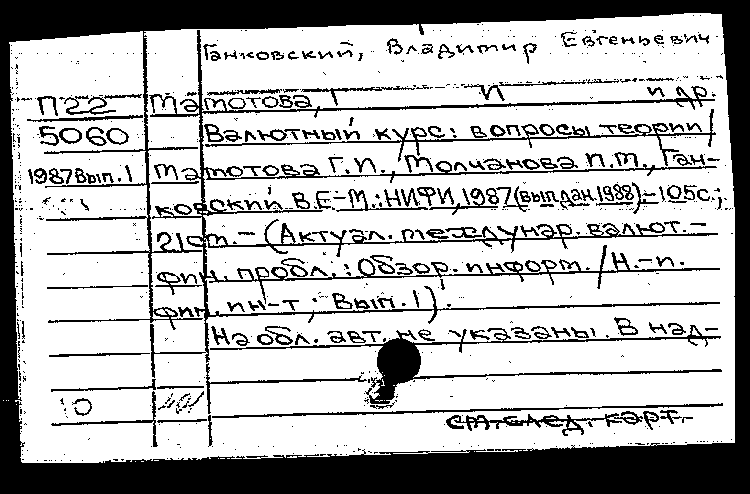 Ганковский, Владимир Евгеньевич
П22 Матотова, Г И и др.
5060 Валютный курс: вопросы теории /
1987 Вып. 1 Матотова Г.И., Молчанова Л.М., Ган-
ковский В.Е - М.: НИФИ, 1987 (вып.дан. 1988). - 105 с.;
21 см. - (Актуал. междунар. валют. -
фин. пробл.: Обзор. информ. / Н.-и.
фин. ин-т; Вып. 1).
На обл. авт. не указаны. В над-
10
см. след. карт.